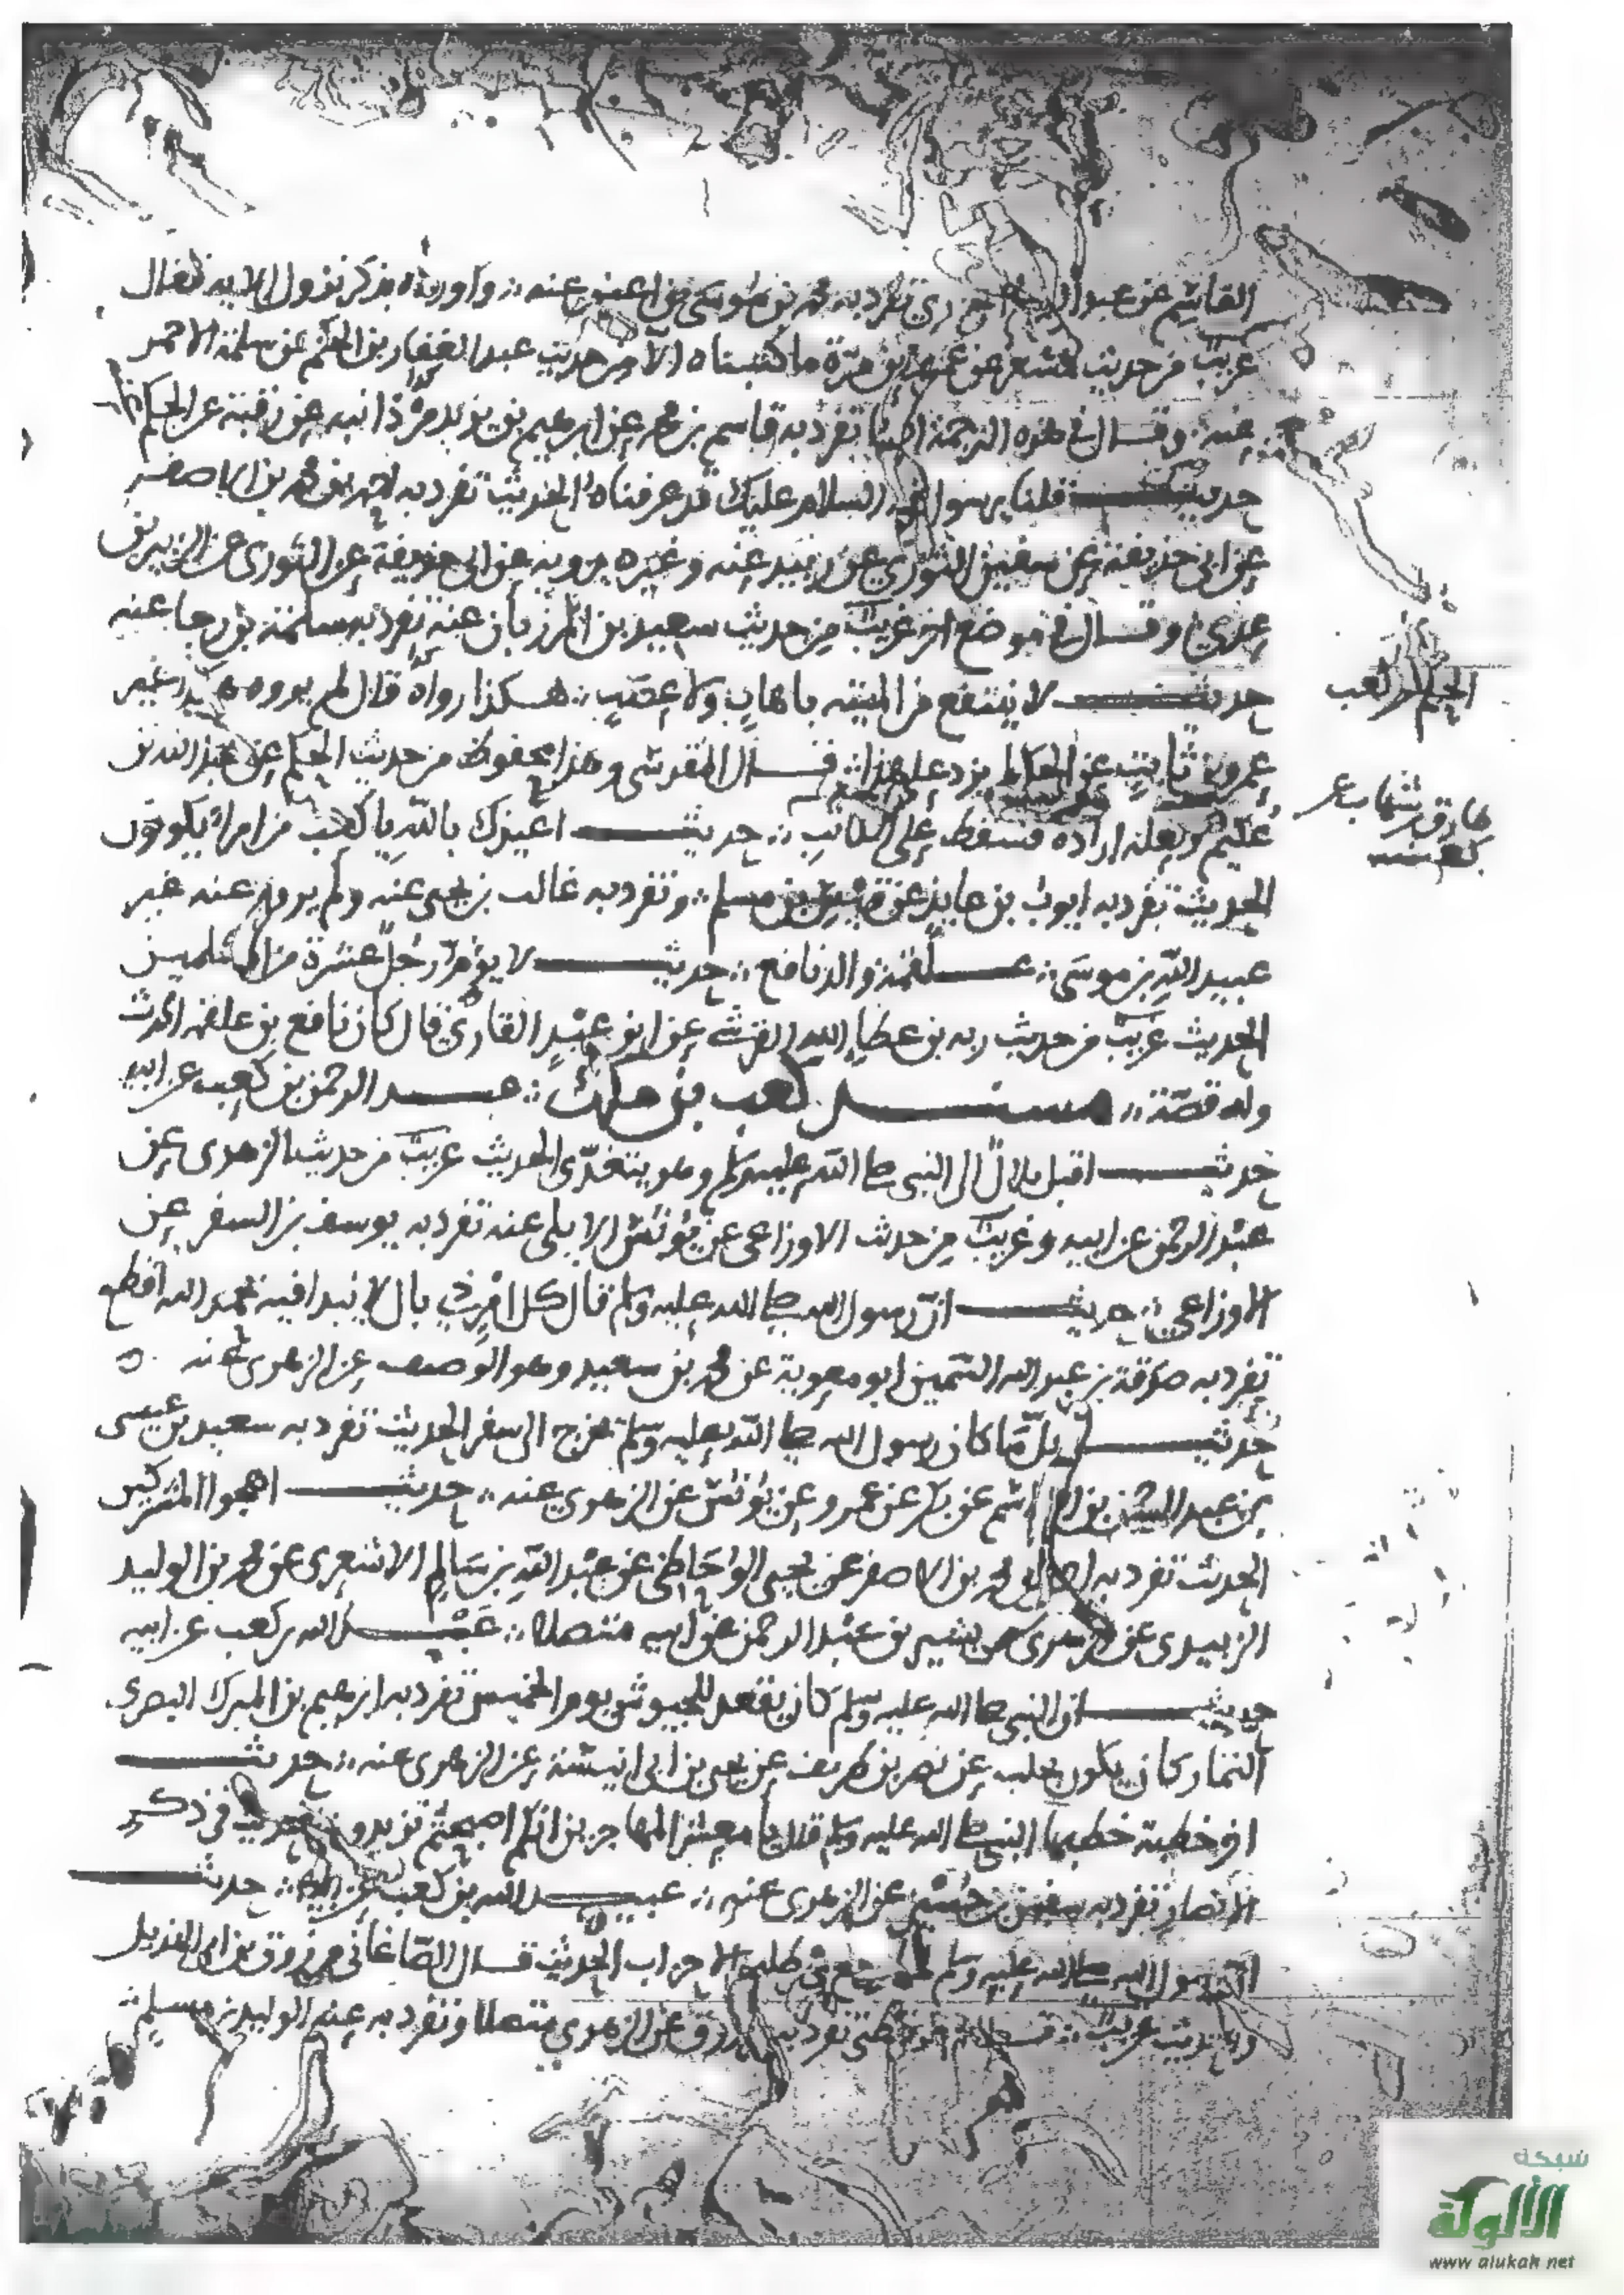 القاسم عن عبد الواحد تفرد به محمد بن موسى بن اعين عنه وأورده بذكر نزول الاية فقال
غريب من حديث مسعر عن عمرو بن مرة ما كتبناه الا من حديث عبد الغفار بن الحكم عن سلمة الاحمر
عنه وقال في هذه الترجمة ايضا تفرد به قاسم بن محمد عن ابرهيم بن يزيد مرذانبه عن رقبة عن الحكم
حديث قلنا يرسول الله السلام عليك قد عرفناه الحديث تفرد به احمد بن محمد بن الاصفر
عن ابي حذيفة عن سفين الثوري عن زبيد عنه وغيره يرويه عن ابي حذيفة عن الثوري عن الزبير بن
عدي وقال في موضع اخر غريب من حديث سعيد بن المرزبان عنه تفرد به سلمة بن رجا عنه
حديث لا ينتفع من الميتة باهاب ولا عصب هكذا رواه قال لم يروه غير
عمرو بن ثابت عن الحكم لم يزد على هذا قال المقدسي وهذا محفوظ من حديث الحكم عن عبد الله بن
عكيم ولعله اراده فسقط على الكاتب حديث اعيذك بالله يا كعب من امراء يكونون
الحديث تفرد به ايوب بن عايذ عن قيس بن مسلم وتفرد به غالب بن نجيح عنه ولم يروه عنه غير
عبيد الله بن موسى علقمة والد نافع حديث لا يؤمر رجل عشرة من المسلمين
الحديث غريب من حديث ربه بن عطاء الله القرشي عن ابن عبد القاري قال كان نافع بن علقمة الحديث
وله قصة مسند كعب بن مالك عبد الرحمن بن كعب عن ابيه
حديث اقبل بلال الى النبي صلى الله عليه وسلم وهو يتغدى الحديث غريب من حديث الزهري عن
عبد الرحمن عن ابيه وغريب من حديث الاوزاعي عن يونس الايلي عنه تفرد به يوسف بن السفر عن
الاوزاعي حديث ان رسول الله صلى الله عليه وسلم قال كل امر ذي بال لا يبدا فيه بحمد الله اقطع
تفرد به صدقة بن عبد الله السمين ابو معوية عن محمد بن سعيد وهو الوصيف عن الزهري عنه
حديث قل ما كان رسول الله صلى الله عليه وسلم يخرج الى سفر الحديث تفرد به سعيد بن عيسى
بن عن بكر عن عمرو عن يونس عن الزهري عنه حديث اهجوا المشركين
الحديث تفرد به محمد بن الاصفر عن يحيى الوحاظي عن عبد الله بن سالم الاشعري عن محمد بن الوليد
الزبيدي عن الزهري عن بشير بن عبد الرحمن عن ابيه متصلا عبد الله بن كعب عن ابيه
حديث ان النبي صلى الله عليه وسلم كان يقعد للجيوش يوم الخميس تفرد به ابرهيم بن المبرك البصري
التمار كان يكون بحلب عن نصر بن طريف عن يحيى بن ابي انيسة عن الزهري عنه حديث
اخر خطبة خطبها النبي صلى الله عليه وسلم قال يا معشر المهاجرين انكم اصبحتم تزيدون الحديث في ذكر
الانصار تفرد به سفين بن حسين عن الزهري عنه عبيد الله بن كعب عن ابيه حديث
ان رسول الله صلى الله عليه وسلم لما رجع من طلب الاحزاب الحديث قال الصاغاني مرزوق بن ابي الهذيل
وحديث غريب تفرد به مرزوق عن الزهري متصلا وتفرد به عنه الوليد بن مسلم
طارق بن شهاب عن
كعب
شبكة
الألوكة
www.alukah.net